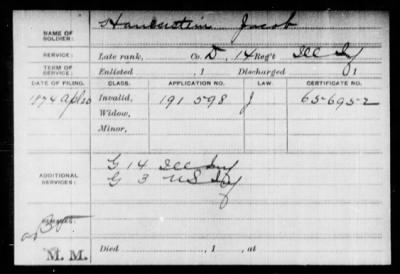 NAME OF SOLDIER: Jacob
SERVICE: Late rank, Co. D, 14 Reg't Ill Inf
TERM OF SERVICE: Enlisted , 1 Discharged , 1
DATE OF FILING. CLASS. APPLICATION NO. LAW. CERTIFICATE NO.
1874 Apl 20 Invalid, 191598 J 656952
Widow,
Minor,
ADDITIONAL SERVICES: G 14 Ill Inf
G 3 US Inf
M. M. Died , 1 , at